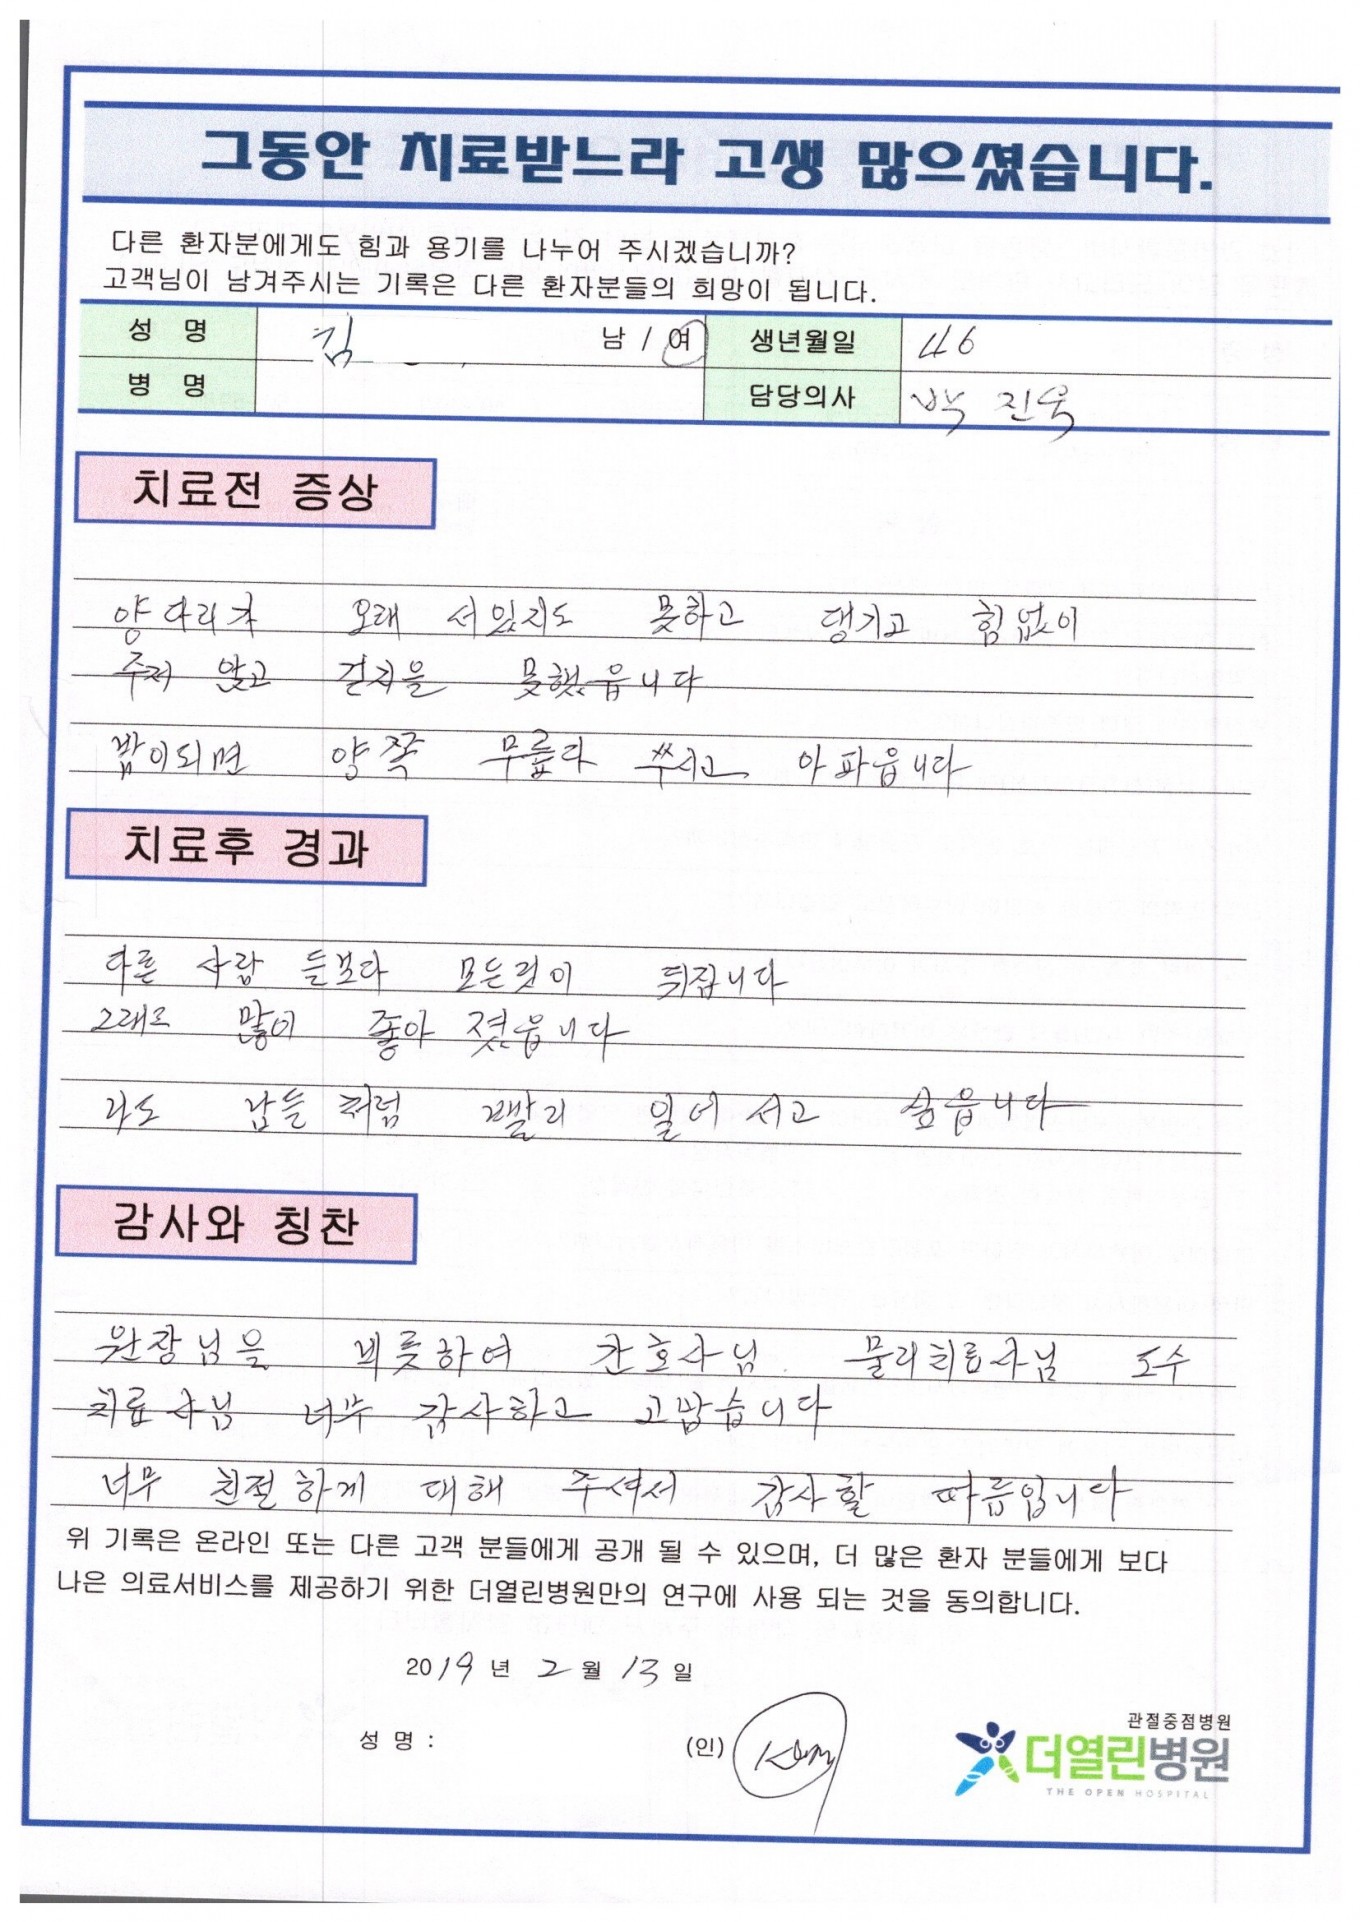 그동안 치료받느라 고생 많으셨습니다.
다른 환자분에게도 힘과 용기를 나누어 주시겠습니까?
고객님이 남겨주시는 기록은 다른 환자분들의 희망이 됩니다.
성 명 김 남 / 여 생년월일 46
병 명 담당의사 박 진욱
치료전 증상
양다리가 오래 서있지도 못하고 댕기고 힘없이
주저 앉고 걷지을 못했읍니다
밤이되면 양쪽 무릎다 쑤시고 아파읍니다
치료후 경과
다른 사람 들보다 모든것이 뒤집니다
그래도 많이 좋아 졋읍니다
나도 남들 처럼 빨리 일어 서고 싶읍니다
감사와 칭찬
원장님을 비롯하여 간호사님 물리치료사님 도수
치료사님 너무 감사하고 고맙습니다
너무 친절하게 대해 주셔서 감사할 따름입니다
위 기록은 온라인 또는 다른 고객 분들에게 공개 될 수 있으며, 더 많은 환자 분들에게 보다
나은 의료서비스를 제공하기 위한 더열린병원만의 연구에 사용 되는 것을 동의합니다.
2019 년 2 월 13 일
성 명 : (인)
관절중점병원
더열린병원
THE OPEN HOSPITAL